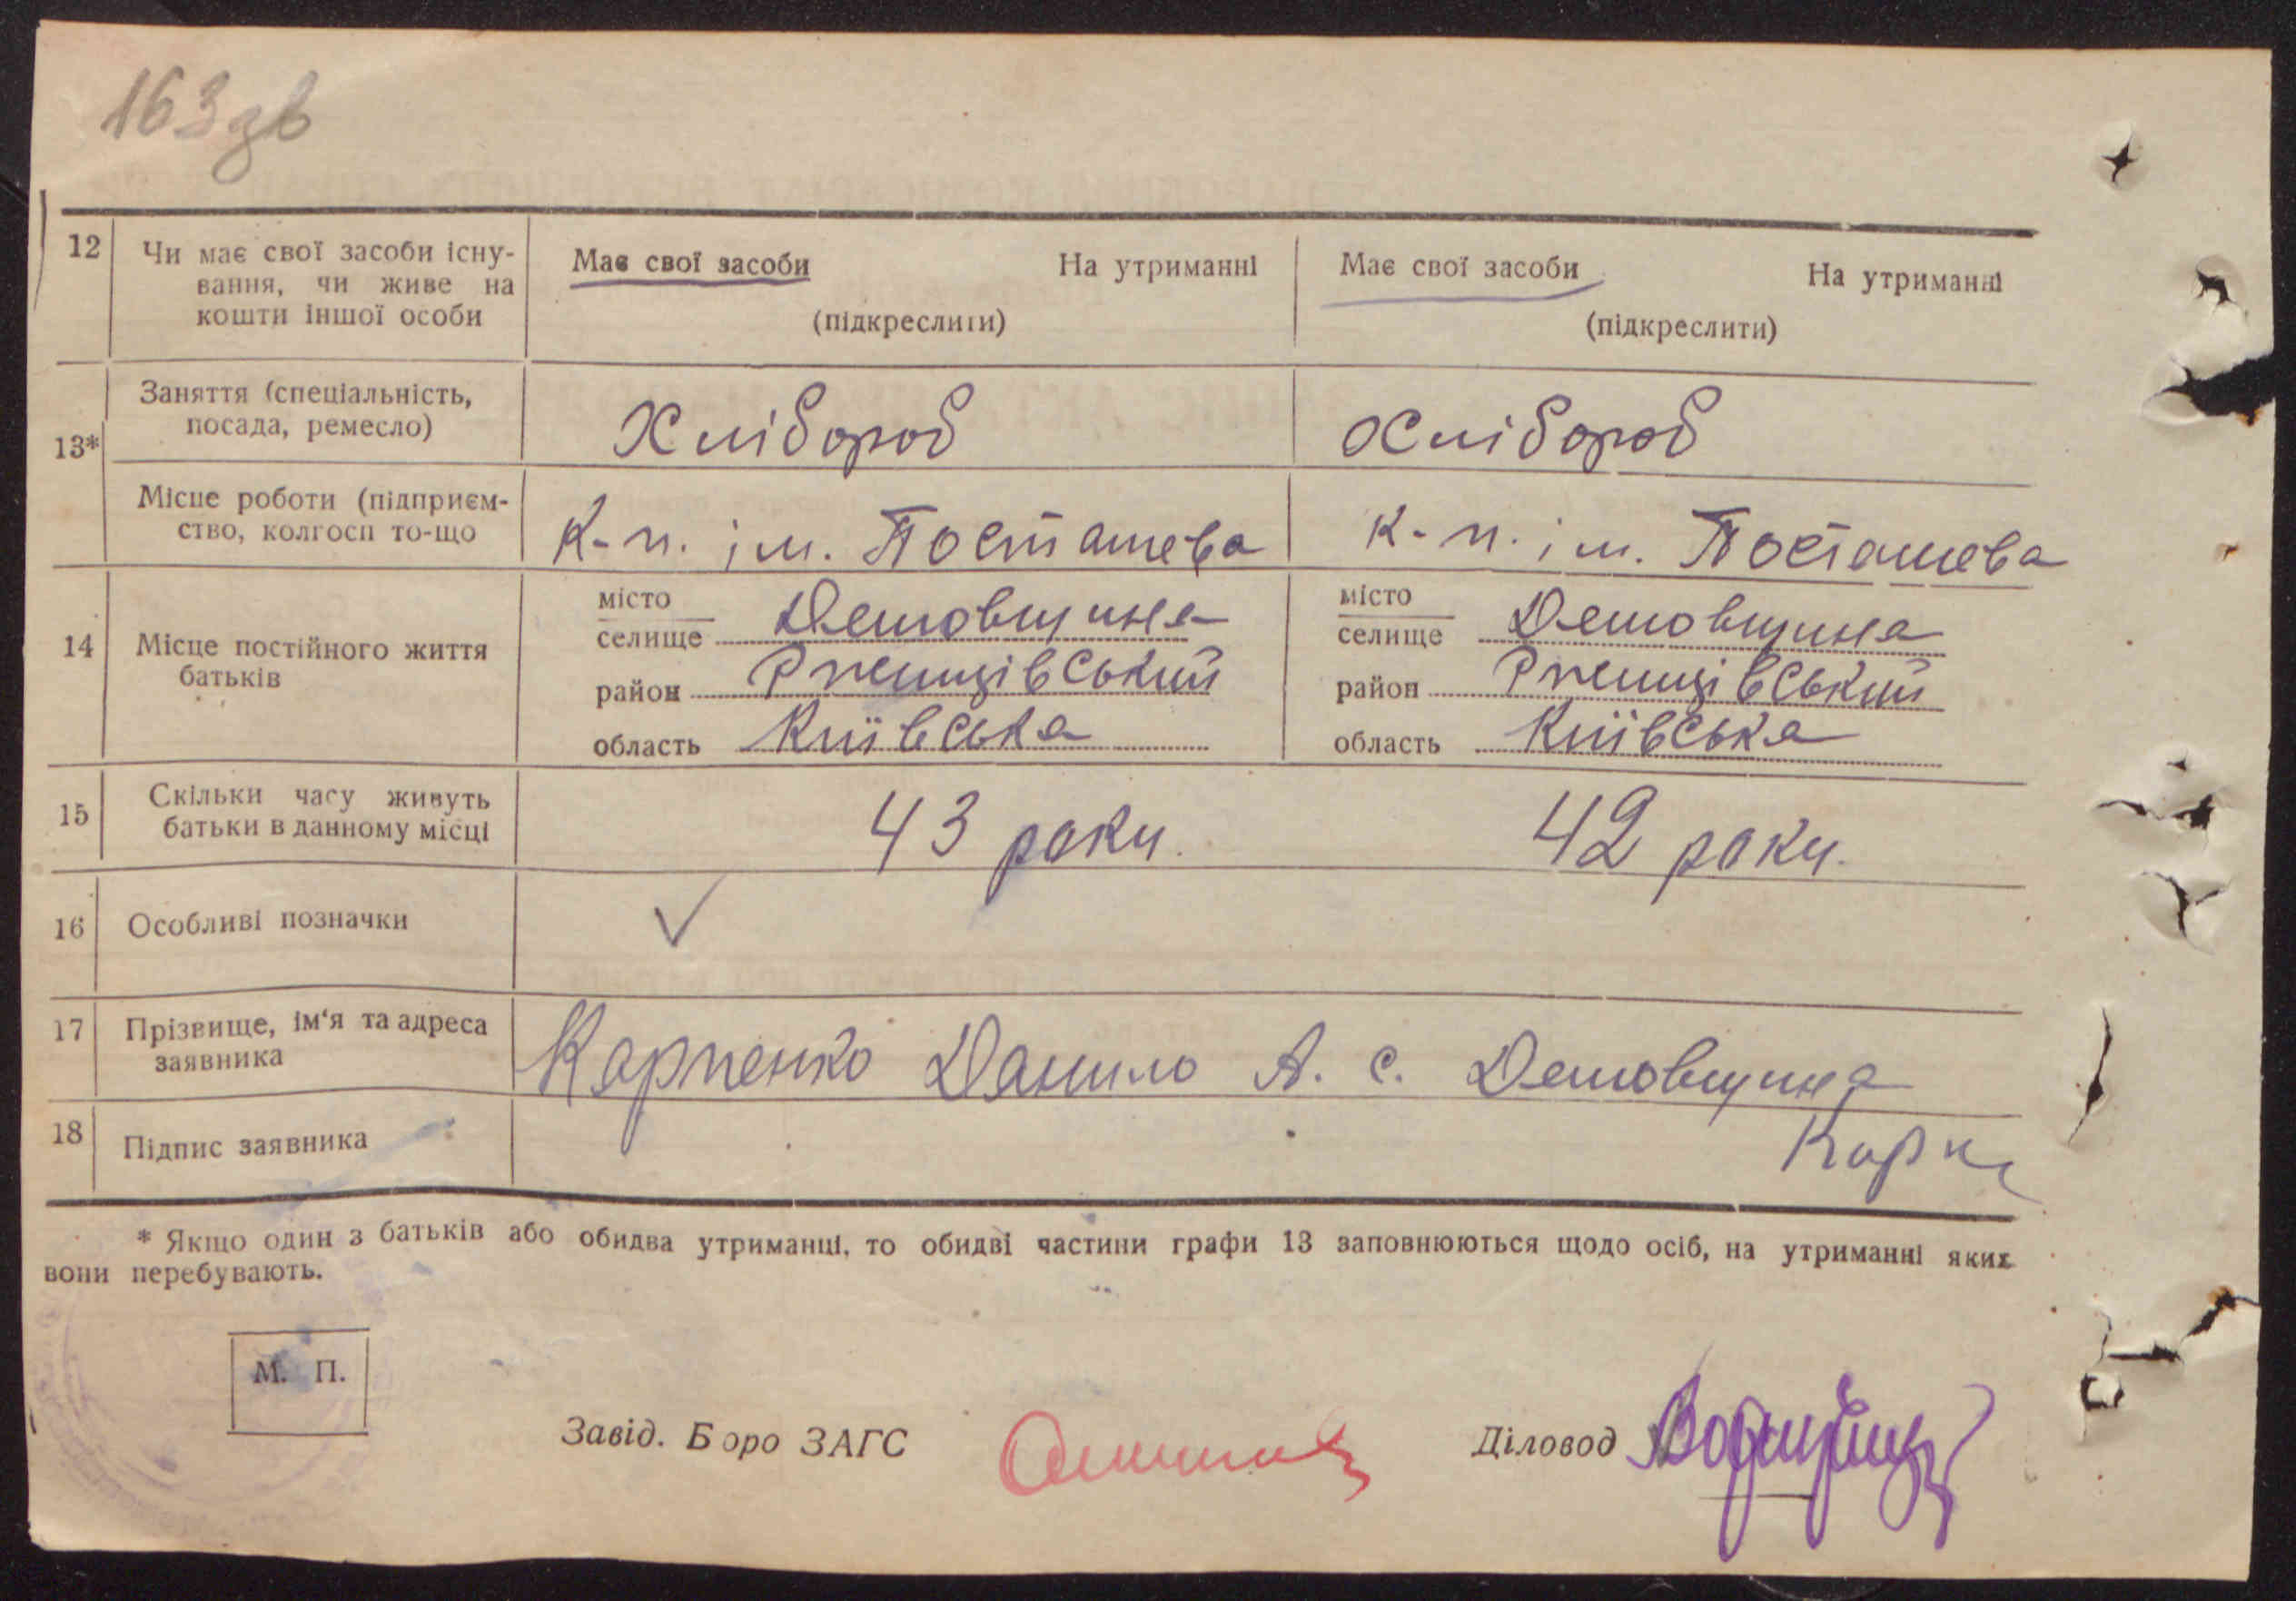 163 зв
12 Чи має свої засоби існу- Має свої засоби На утриманні Має свої засоби На утриманні
вання, чи живе на
кошти іншої особи (підкреслити) (підкреслити)
Заняття (спеціальність,
посада, ремесло) Хлібороб Хлібороб
13*
Місце роботи (підприєм-
ство, колгосп то-що К-п. ім. Посташева К-п. ім. Посташева
місто місто
селище Демовщина селище Демовщина
14 Місце постійного життя
батьків
район Ржищівський район Ржищівський
область Київська область Київська
15 Скільки часу живуть
батьки в данному місці 43 роки. 42 роки.
16 Особливі позначки
17 Прізвище, ім'я та адреса
заявника Карпенко Данило А. с. Демовщина
18 Підпис заявника Карп
* Якщо один з батьків або обидва утриманці, то обидві частини графи 13 заповнюються щодо осіб, на утриманні яких
вони перебувають.
М. П.
Завід. Бюро ЗАГС Діловод